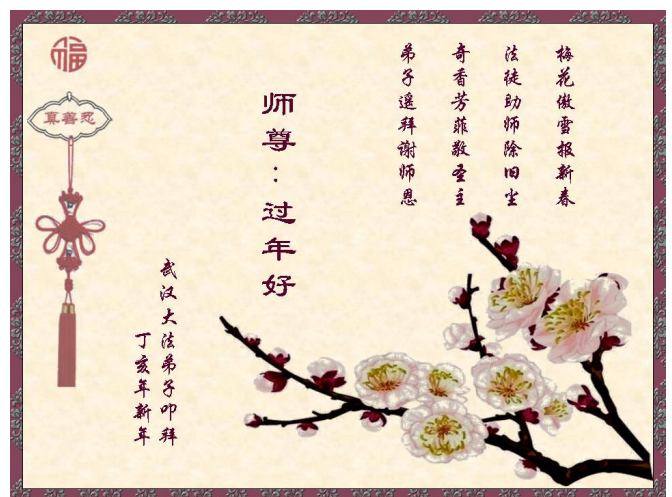 梅花傲雪报新春
法徒助师除旧尘
奇香芳菲敬圣主
弟子遥拜谢师恩
师尊：过年好
武汉大法弟子叩拜
丁亥年新年
福
真善忍